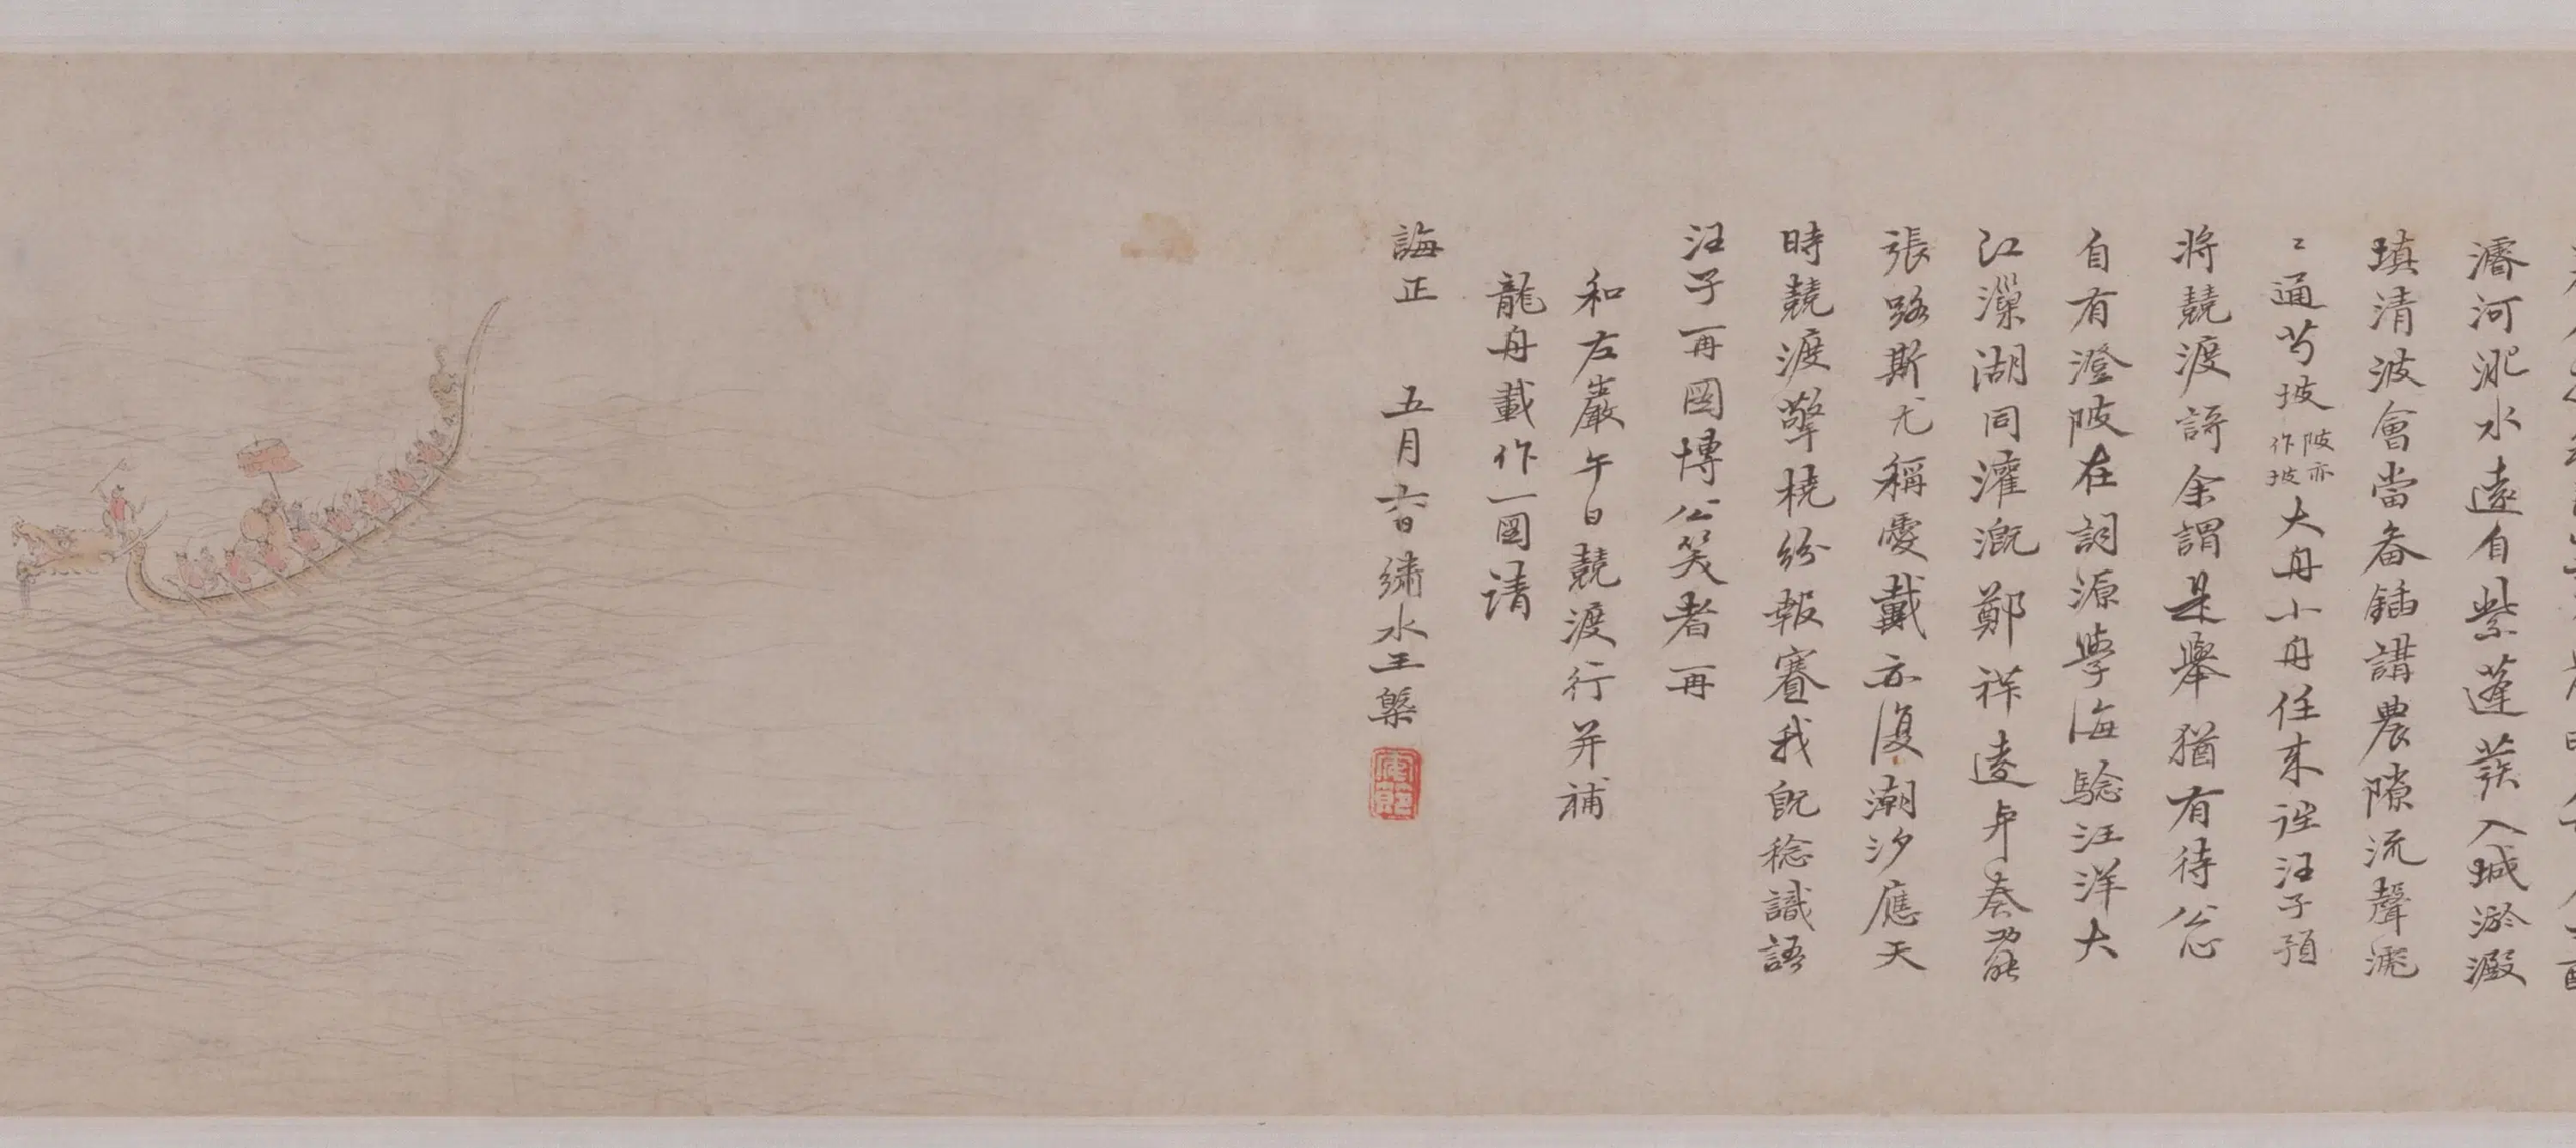 濬河淝水遠自紫蓬蓊入城淤澱
填清波會當畚鍤講農隙流聲瀌
〻通芍坡陂亦作坡大舟小舟任來往汪子預
將競渡誇余謂是舉猶有待公忘
自有澄陂在詞源學海驗汪洋大
江漅湖同灌溉鄭祥遠弁奏罷
張路斯尤稱靈戴亦復潮汐應天
時競渡擎橈紛報賽我既稔識語
汪子再圖博公笑者再
和左巖午日競渡行并補
龍舟載作一圖請
誨正
五月六日繡水王槩